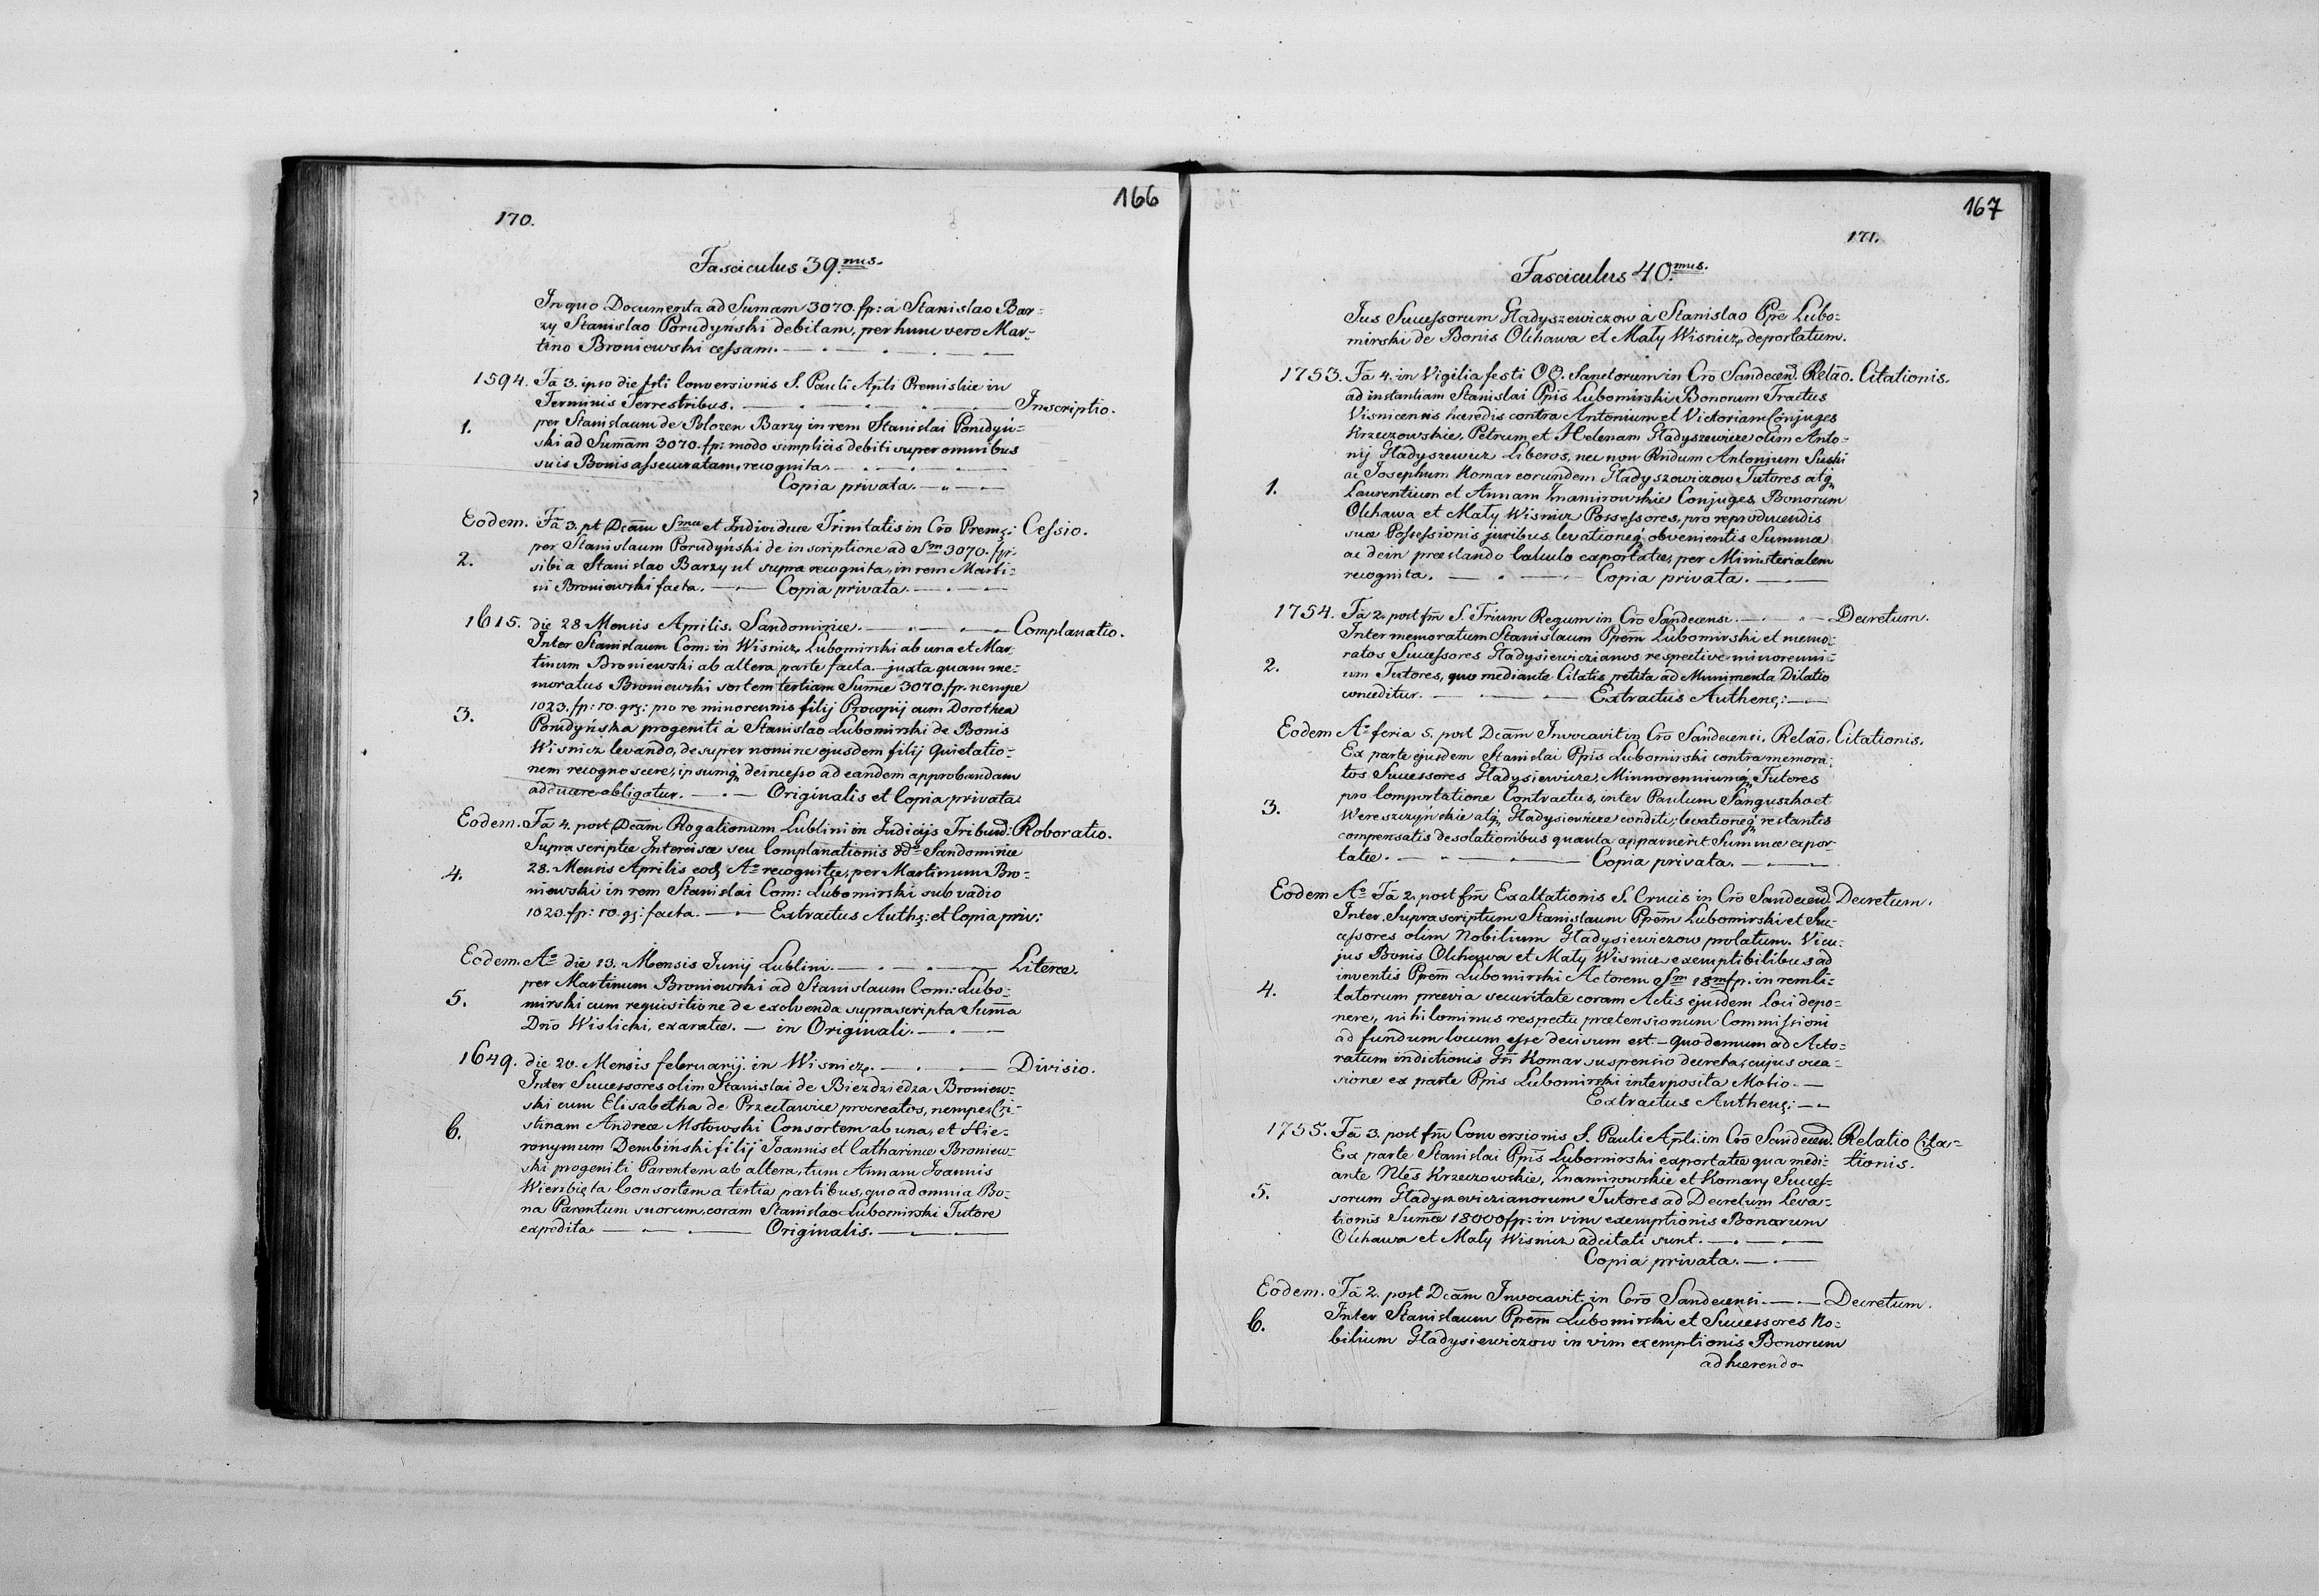 166
170.
Fasciculus 39.nus.
In quo Documenta ad Sumam 3070. fp: a Stanislao Bar-
zy Stanislao Porudyński debitam, per hunc vero Mar-
tino Broniewski cessam.
1594. Fã 3. ipso die fsti Conversionis S. Pauli Apli Premisliæ in
Terminis Terrestribus. Inscriptio.
1. per Stanislaum de Blozen Barzy in rem Stanislai Porudyń-
ski ad Sumãm 3070. fp: modo simplicis debiti super omnibus
suis Bonis assecuratam, recognita.
Copia privata.
Eodem. Fã 3. pt Dcãm Smæ et Individuæ Trinitatis in Crõ Prems: Cessio.
2. per Stanislaum Porudyński de inscriptione ad Sm 3070. fp:
sibi a Stanislao Barzy ut supra recognita, in rem Marti-
ni Broniewski facta. Copia privata.
1615. die 28 Mensis Aprilis. Sandomiriæ. Complanatio.
Inter Stanislaum Com: in Wisnicz Lubomirski ab una et Mar-
tinum Broniewski ab altera parte facta. juxta quam me-
moratus Broniewski sortem tertiam Sumæ 3070. fp. nempe
3. 1023. fp: 10. grs: pro re minorennis filij Procopij cum Dorothea
Porudyńska progeniti à Stanislao Lubomirski de Bonis
Wisnicz levando, desuper nomine ejusdem filij Quietatio-
nem recognoscere, ipsumq deincesso ad eandem approbandam
adducere obligatur. Originalis et Copia privata.
Eodem. Fã 4. post Dcãm Rogationum Lublini in Judicijs Tribund: Roboratio.
Suprascriptæ Intercisæ seu Complanationis dd Sandomiriæ
4. 28. Mensis Aprilis eod Ao recognitæ, per Martinum Bro-
niewski in rem Stanislai Com: Lubomirski sub vadio
1023. fp: 10. gs: facta. Extractus Auths: et Copia priv:
Eodem. Ao die 13. Mensis Junij Lublini. Literæ.
per Martinum Broniewski ad Stanislaum Com: Lubo-
5. mirski cum requisitione de exolvenda suprascripta Suma
Dnõ Wislicki, exaratæ. in Originali.
1649. die 20. Mensis februarij. in Wisnicz. Divisio.
Inter Successores olim Stanislai de Biezdziedza Broniew-
ski cum Elisabetha de Przecławice procreatos, nempe Cri-
6. stinam Andreæ Mstowski Consortem ab una, et Hie-
ronymum Dembiński filij Joannis et Catharinæ Broniew-
ski progeniti Parentem ab altera, tum Annam Joannis
Wierzbięta Consortem a tertia partibus, quo ad omnia Bo-
na Parentum suorum, coram Stanislao Lubomirski Tutore
expedita. Originalis.
167
171.
Fasciculus 40.mus.
Jus Successorum Gładyszewiczow à Stanislao Ppe Lubo-
mirski de Bonis Olchawa et Mały Wisnicz, deportatum.
1753. Fã 4. in Vigilia festi OO. Sanctorum in Crõ Sandecend. Relão. Citationis.
ad instantiam Stanislai Ppis Lubomirski Bonorum Tractus
Visnicensis hæredis contra Antonium et Victoriam Conjuges
Krzeczowskie, Petrum et Helenam Gładyszewicze olim Anto-
nij Gładyszewicz Liberos, nec non Rndum Antonium Suski
ac Josephum Komar eorundem Gładyszewiczow Tutores atq
1. Laurentium et Annam Znamirowskie Conjuges, Bonorum
Olchawa et Mały Wisnicz Possessores, pro reproducendis
suæ Possessionis juribus, levationeq obvenientis Summæ
ac dein præstando Calculo exportatæ, per Ministerialem
recognita. Copia privata.
1754. Fã 2. post fm S. Trium Regum in Crõ Sandecensi. Decretum.
Inter memoratum Stanislaum Ppem Lubomirski et memo-
2. ratos Successores Gładysiewiczianos, respective minorenni-
um Tutores, quo mediante Citatis petita ad Munimenta Dilatio
conceditur. Extractus Authens:
Eodem Ao feria 5. post Dcãm Invocavit in Crõ Sandecensi. Relão. Citationis.
Ex parte ejusdem Stanislai Ppis Lubomirski contra memora-
tos Successores Gładysiewicze, Minnorenniumq Tutores
3. pro Comportatione Contractus, inter Paulum Sanguszko et
Wereszczyńskie atq Gładysiewicze conditi, levationeq restantis
compensatis desolationibus quanta apparuerit Summæ expor-
tatæ. Copia privata.
Eodem Ao Fã 2. post fm Exaltationis S. Crucis in Crõ Sandecend. Decretum.
Inter Suprascriptum Stanislaum Ppem Lubomirski et Suc-
cessores olim Nobilium Gładysiewiczow prolatum. Vicu-
jus Bonis Olchowa et Mały Wisnicz exemptibilibus ad
inventis Ppem Lubomirski Actorem Sm 18m fp. in rem Ci-
4. tatorum prævia securitate coram Actis ejusdem Loci depo-
nere, nihilominus respectu prætensionum Commissioni
ad fundum locum esse decisum est. quodemum ad Acto-
ratum indictionis Gsi Komar suspensio decreta, cujus occa-
sione ex parte Ppis Lubomirski interposita Motio.
Extractus Authens:
1755. Fã 3. post fm Conversionis S. Pauli Apli in Crõ Sandecend. Relatio Cita-
Ex parte Stanislai Ppis Lubomirski exportatæ qua medi- tionis.
ante Nles Krzeczowskie, Znamirowskie et Komary Succes-
5. sorum Gładyszewiczianorum Tutores ad Decretum Leva-
tionis Sumæ 18000 fp: in vim exemptionis Bonorum
Olchawa et Mały Wisnicz adcitati sunt.
Copia privata.
Eodem. Fã 2. post Dcãm Invocavit. in Crõ Sandecensi. Decretum.
6. Inter Stanislaum Ppem Lubomirski et Successores No-
bilium Gładysiewiczow in vim exemptionis Bonorum
adhærendo